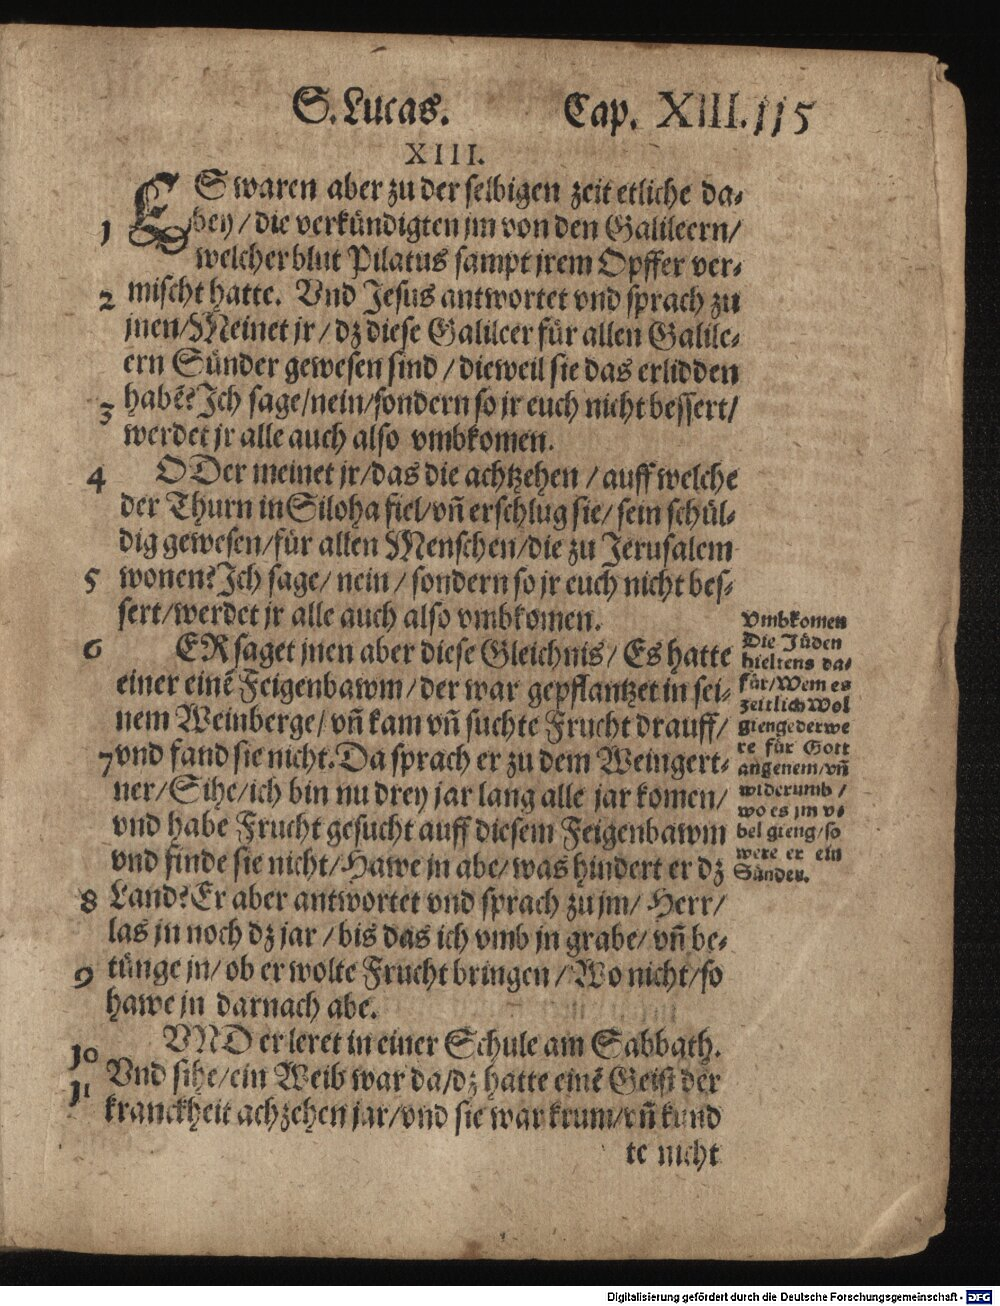 S. Lucas. Cap. XIII. 115
XIII.
ES waren aber zu der selbigen zeit etliche da-
1 bey / die verkündigten jm von den Galileern/
welcher blut Pilatus sampt jrem Opffer ver-
2 mischt hatte. Vnd Jesus antwortet vnd sprach zu
jnen/Meinet jr / dz diese Galileer für allen Galile-
ern Sünder gewesen sind / dieweil sie das erlidden
3 habē? Ich sage/nein/sondern so jr euch nicht bessert/
werdet jr alle auch also vmbkomen.
4 ODer meinet jr/das die achtzehen / auff welche
der Thurn in Siloha fiel/vñ erschlug sie/ sein schül-
dig gewesen/für allen Menschen/die zu Jerusalem
5 wonen? Ich sage/ nein / sondern so jr euch nicht bes-
sert/werdet jr alle auch also vmbkomen.
6 ER saget jnen aber diese Gleichnis/ Es hatte
einer einē Feigenbawm/der war gepflantzet in sei-
nem Weinberge/ vñ kam vñ suchte Frucht drauff/
7 vnd fand sie nicht. Da sprach er zu dem Weingert-
ner/Sihe/ich bin nu drey jar lang alle jar komen/
vnd habe Frucht gesucht auff diesem Feigenbawm
vnd finde sie nicht/Hawe jn abe/was hindert er dz
8 Land? Er aber antwortet vnd sprach zu jm/ Herr/
las jn noch dz jar / bis das ich vmb jn grabe/ vñ be-
9 tünge jn/ ob er wolte Frucht bringen / Wo nicht/so
hawe jn darnach abe.
10 VND er leret in einer Schule am Sabbath.
11 Vnd sihe/ein Weib war da/dz hatte einē Geist der
kranckheit achzehen jar/vnd sie war krum/vñ kund
te nicht
Vmbkomen
Die Jüden
hieltens da-
für/Wem es
zeitlich wol
gienge der we
re für Gott
angenem/vñ
widerumb /
wo es jm v-
bel gieng/so
were er ein
Sünder.
Digitalisierung gefördert durch die Deutsche Forschungsgemeinschaft - DFG